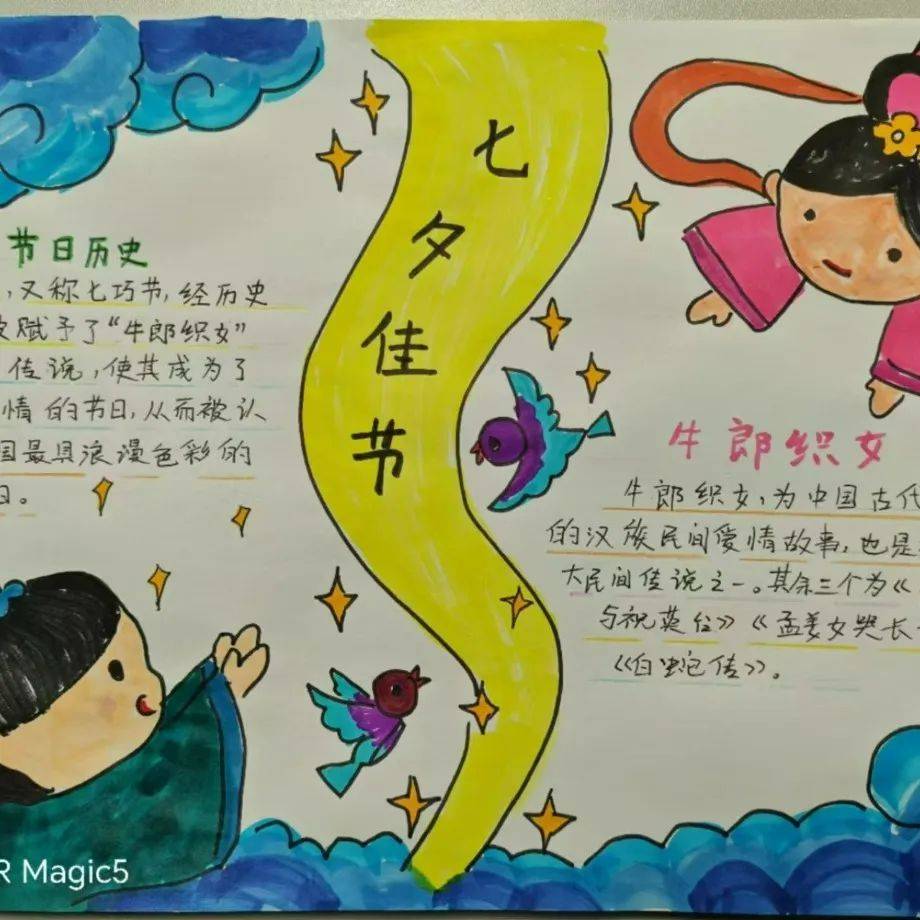 七夕佳节
节日历史
，又称七巧节，经历史
被赋予了“牛郎织女”
传说，使其成为了
情的节日，从而被认
国最具浪漫色彩的
日。
牛郎织女
牛郎织女，为中国古代
的汉族民间爱情故事，也是
大民间传说之一。其余三个为《
与祝英台》《孟姜女哭长
《白蛇传》。
R Magic5